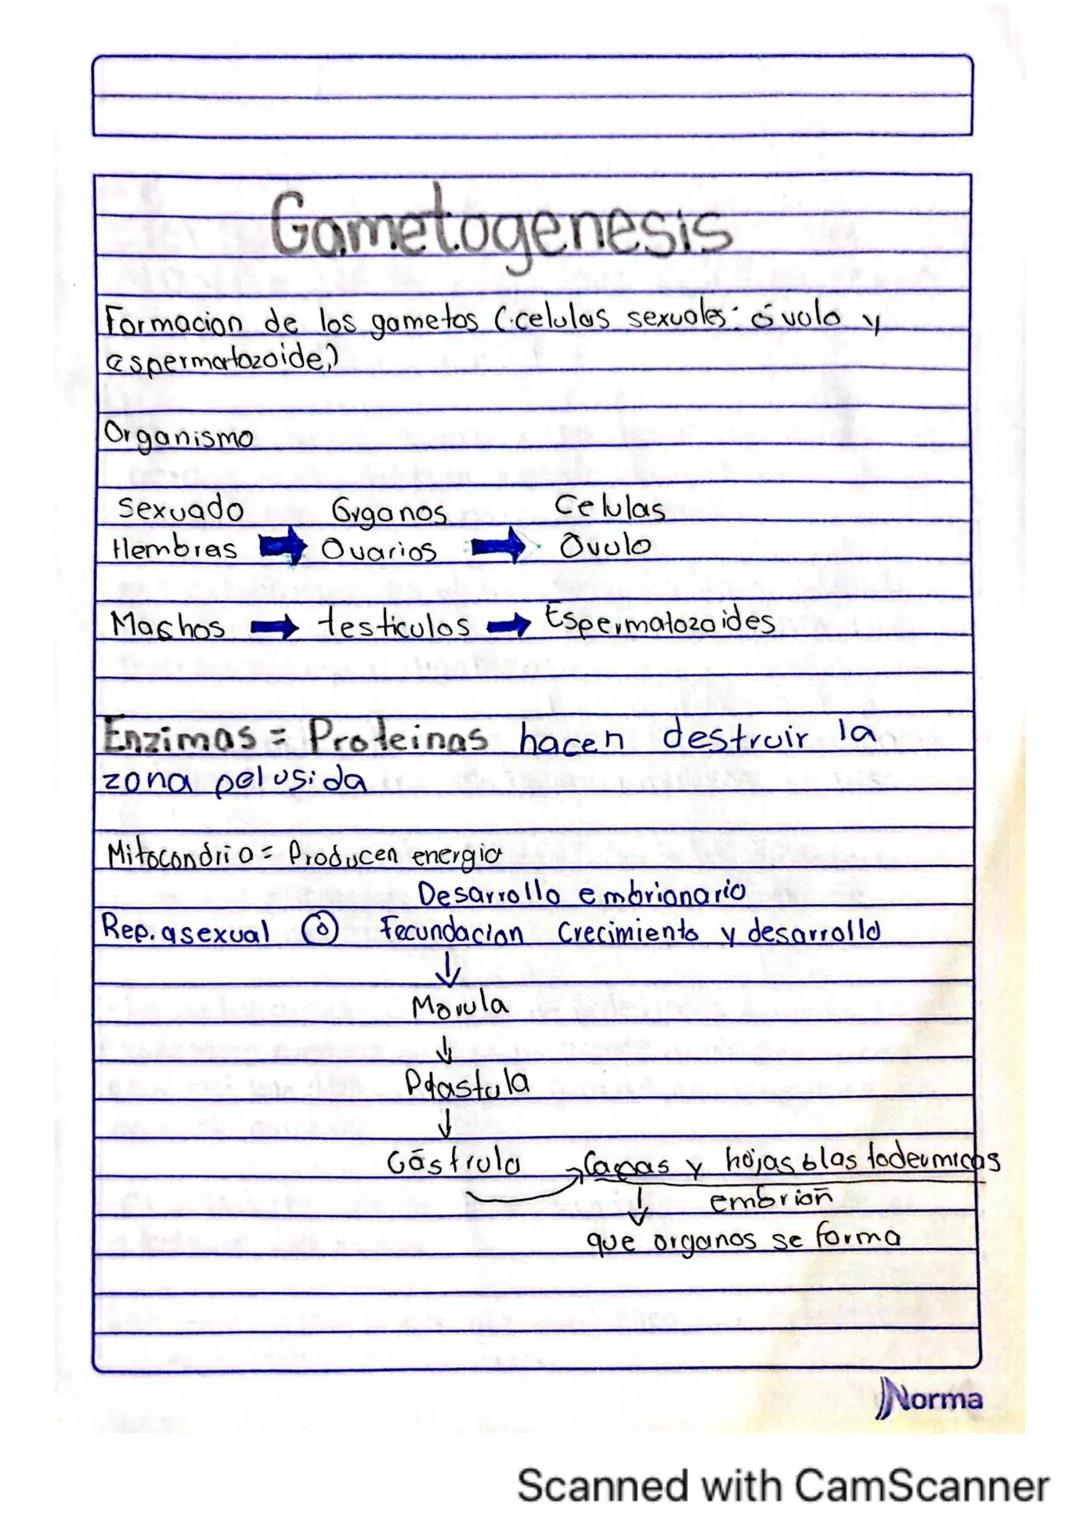 Gametogenesis
Formacion de los gametos (celulas sexuales: óvulo y
espermatozoide,)
Organismo
Sexuado Organos Celulas
Hembras → Ovarios → Óvulo
Machos → testiculos → Espermatozoides
Enzimas = Proteinas hacen destruir la
zona pelusida
Mitocondria = Producen energia
Desarrollo embrionario
Rep. asexual Fecundacion Crecimiento y desarrollo
↓
Morula
↓
Blastula
↓
Gástrula → Capas y hojas blastodermicas
↓ embrion
que organos se forma
Norma
Scanned with CamScanner